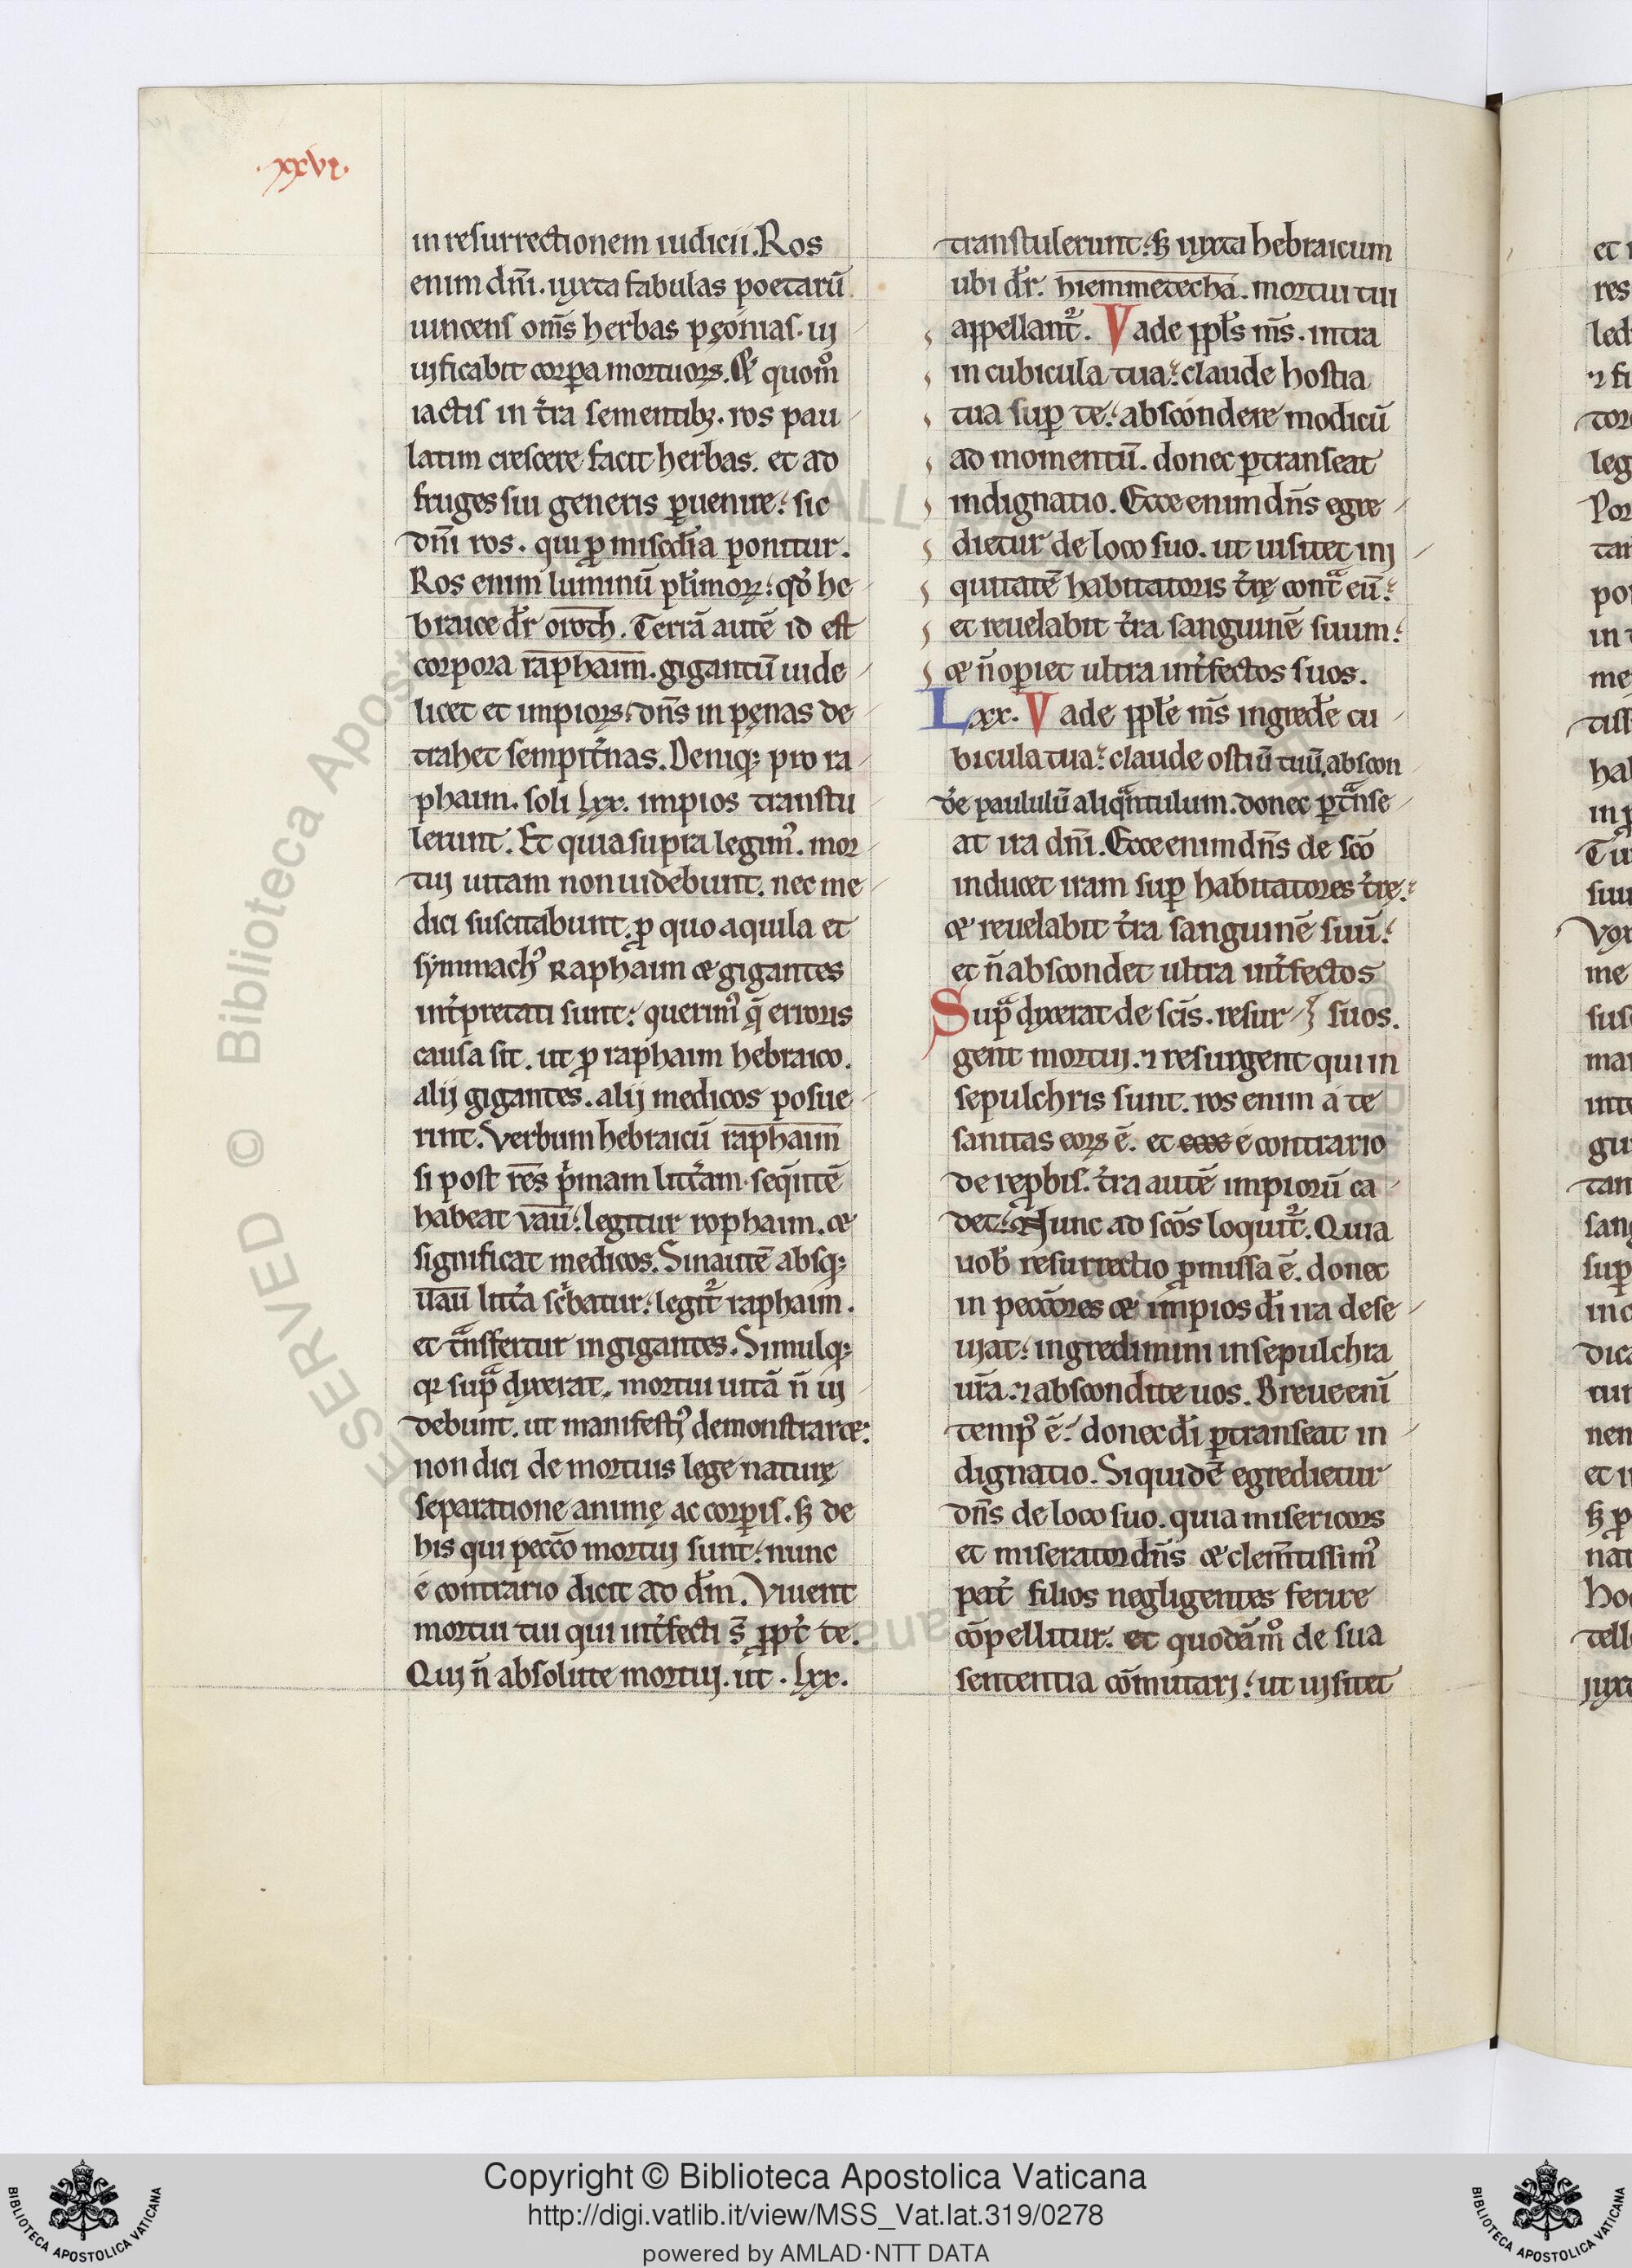 .xxvi.
in resurrectionem iudicii. Ros
enim dn̄i. iuxta fabulas poetarū
uincens om̄s herbas pęonias. ui
uificabit corꝑa mortuoꝝ. Et quom̊
iactis in t̄ra sementibꝫ. ros pau
latim crescere facit herbas. et ad
fruges sui generis ꝑuenire. sic
dn̄i ros. qui ꝓ misc̄dia ponitur.
Ros enim luminū pl̄imoꝝ. qđ he
braice dr̄ oroth. Terrā autē id est
corpora raphaim. gigantū uide
licet et impioꝝ. dn̄s in pęnas de
trahet sempit̄nas. Deniqꝫ pro ra
phaim. soli lxx. impios transtu
lerunt. Et quia supra legimꝰ. mor
tui uitam non uidebunt. nec me
dici suscitabunt. ꝓ quo aquila et
symmachꝰ Raphaim & gigantes
int̄pretati sunt. querimꝰ q̄ erroris
causa sit. ut ꝓ raphaim hebraico.
alij gigantes. alij medicos posue
rint. Verbum hebraicū raphaim
si post res pͥmam litt̄am. seq̄ntē
habeat vau. legitur rophaim. &
significat medicos. Sin autē absqꝫ
uau litt̄a sc̄batur. legit̄ raphaim.
et tͣnsfertur in gigantes. Simulqꝫ
qꝛ supͣ dixerat. mortui uitā n̄ ui
debunt. ut manifestiꝰ demonstraret.
non dici de mortuis lege naturę
separatione animę ac corꝑis. sꝫ de
his qui pecc̄o mortui sunt. nunc
e contrario dicit ad dm̄. Viuent
mortui tui qui int̄fecti s̄ ꝓpt̄ te.
Qui n̄ absolute mortui. ut . lxx.
transtulerunt. sꝫ iuxta hebraicum
ubi dr̄. hiemmetecha. mortui tui
appellant̄. Vade ppl̄s m̄s. intra
in cubicula tua. claude hostia
tua suꝑ te. abscondere modicū
ad momentū. donec ꝑtranseat
indignatio. Ecce enim dn̄s egre
dietur de loco suo. ut uisitet ini
quitatē habitatoris t̄rę contͣ eū.
et reuelabit t̄ra sanguinē suum.
& n̄ oꝑiet ultra int̄fectos suos.
Lxx. Vade ppl̄e m̄s ingrede cu
bicula tua. claude ostiū tuū. abscon
de paululū aliqͣntulum. donec ꝑtͣnse
at ira dn̄i. Ecce enim dn̄s de sc̄o
inducet iram suꝑ habitatores t̄rę.
& reuelabit t̄ra sanguinē suū.
et n̄ abscondet ultra int̄fectos
suos.
Supͣ dixerat de sc̄is. resur
gent mortui. ⁊ resurgent qui in
sepulchris sunt. ros enim a te
sanitas eoꝝ ē. et e contrario
de reꝓbis. t̄ra autē impiorū ca
det. Nunc ad sc̄os loquit̄. Quia
uob̄ resurrectio ꝓmissa ē. donec
in pecc̄ores & impios dī ira dese
uiat. ingredimini in sepulchra
ur̄a. ⁊ abscondite uos. Breue enī
tempꝰ ē. donec dī ꝑtranseat in
dignatio. Siquidē egredietur
dn̄s de loco suo. quia misericors
et miserator dn̄s & clem̄tissimꝰ
pat̄ filios negligentes ferire
cōpellitur. et quodāmͦ de sua
sententia cōmutari. ut uisitet
Copyright © Biblioteca Apostolica Vaticana
http://digi.vatlib.it/view/MSS_Vat.lat.319/0278
powered by AMLAD·NTT DATA